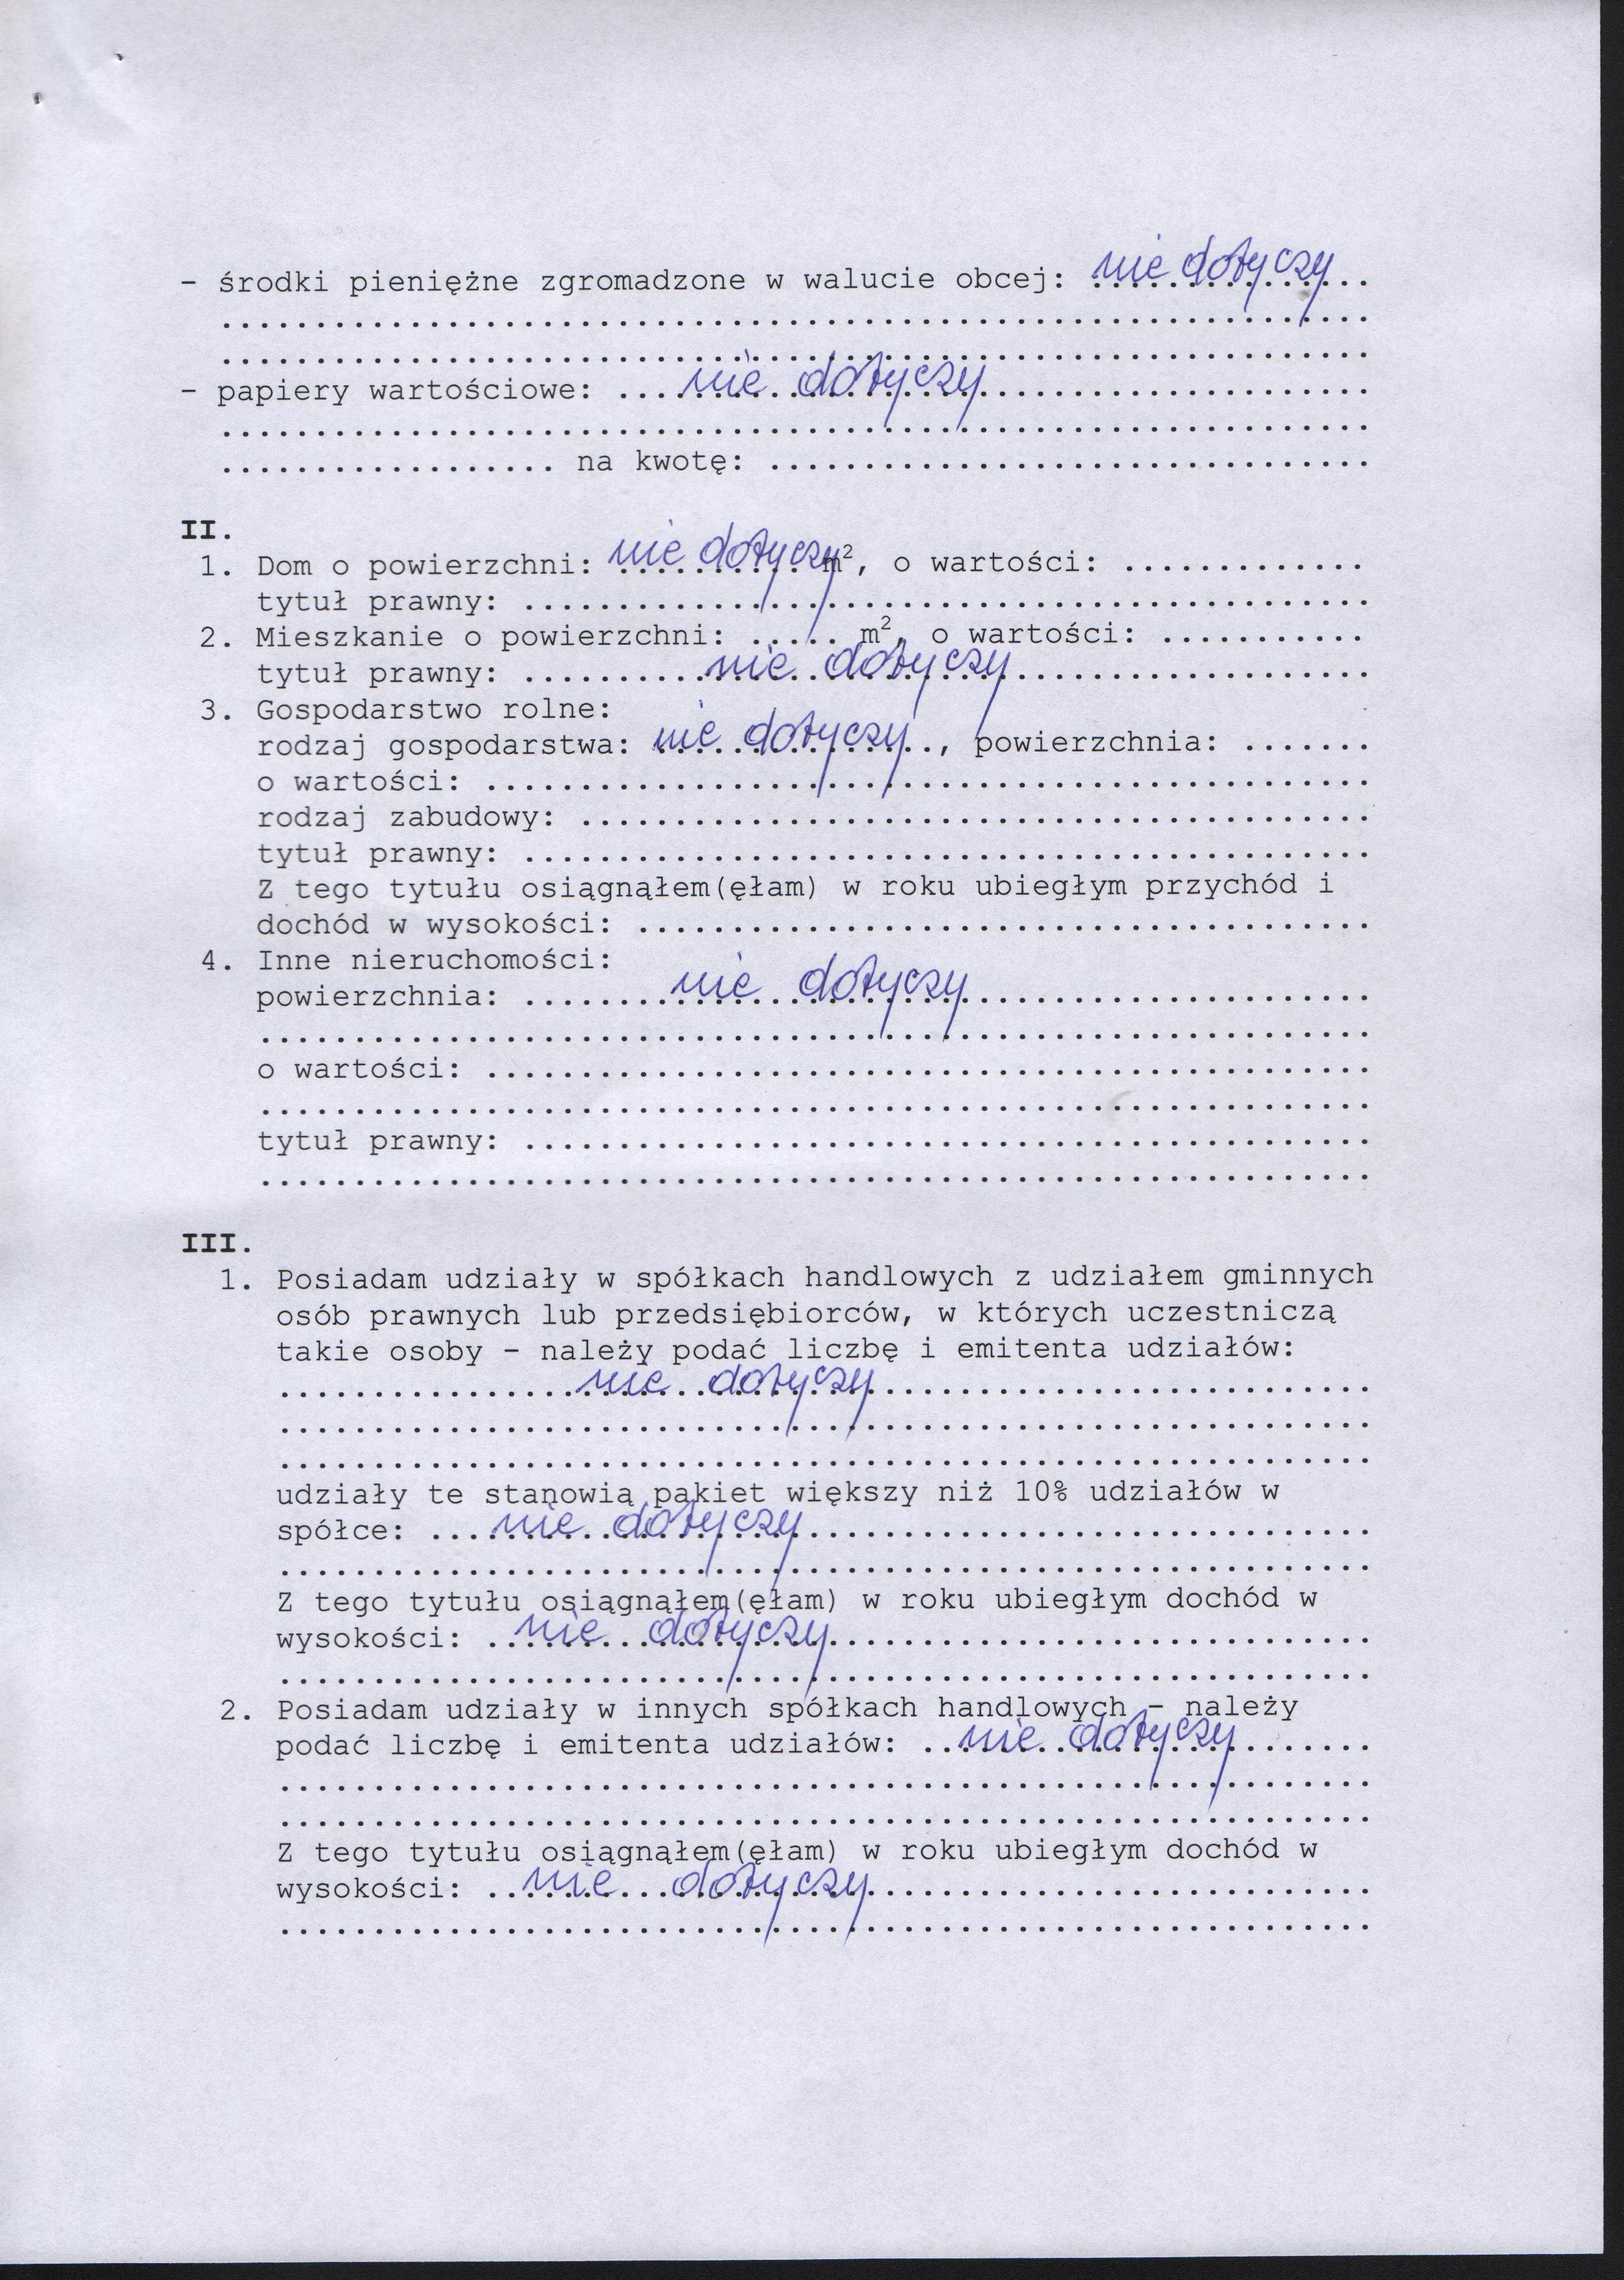 - środki pieniężne zgromadzone w walucie obcej: nie dotyczy
- papiery wartościowe: nie dotyczy
na kwotę:
II.
1. Dom o powierzchni: nie dotyczy m², o wartości:
tytuł prawny:
2. Mieszkanie o powierzchni: ..... m², o wartości:
tytuł prawny: nie dotyczy
3. Gospodarstwo rolne:
rodzaj gospodarstwa: nie dotyczy, powierzchnia:
o wartości:
rodzaj zabudowy:
tytuł prawny:
Z tego tytułu osiągnąłem(ęłam) w roku ubiegłym przychód i
dochód w wysokości:
4. Inne nieruchomości:
powierzchnia: nie dotyczy
o wartości:
tytuł prawny:
III.
1. Posiadam udziały w spółkach handlowych z udziałem gminnych
osób prawnych lub przedsiębiorców, w których uczestniczą
takie osoby - należy podać liczbę i emitenta udziałów:
nie dotyczy
udziały te stanowią pakiet większy niż 10% udziałów w
spółce: nie dotyczy
Z tego tytułu osiągnąłem(ęłam) w roku ubiegłym dochód w
wysokości: nie dotyczy
2. Posiadam udziały w innych spółkach handlowych - należy
podać liczbę i emitenta udziałów: nie dotyczy
Z tego tytułu osiągnąłem(ęłam) w roku ubiegłym dochód w
wysokości: nie dotyczy